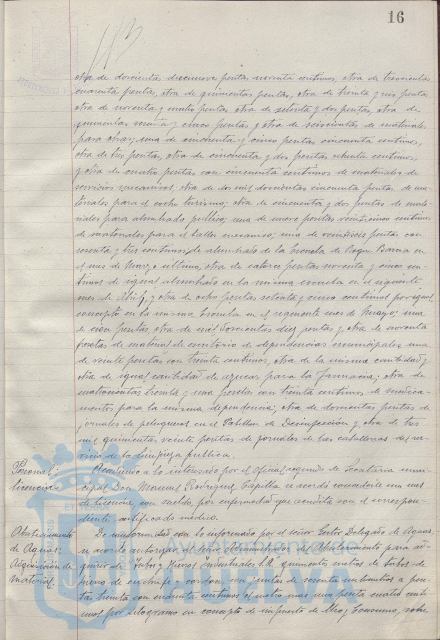 16
otra de doscientas diecinueve pesetas noventa céntimos, otra de trescientas
cuarenta pesetas, otra de quinientas pesetas, otra de treinta y seis pesetas
otra de noventa y cuatro pesetas otra de setenta y dos pesetas, otra de
y cinco pesetas y otra de seiscientas de materiales
para obras; una de cincuenta y cinco pesetas cincuenta céntimos,
otra de tres pesetas, otra de cincuenta y dos pesetas ochenta céntimos,
y otra de cuatro pesetas con cincuenta céntimos de materiales de
servicios mecanicos, otra de dos mil doscientas cincuenta pesetas de ma-
teriales para el coche turismo; otra de cincuenta y dos pesetas de mate-
riales para alumbrado publico; una de nueve pesetas veinticinco céntimos
de materiales para el taller mecanico; una de veintiseis pesetas con
sesenta y tres céntimos de alumbrado de la Escuela de Roque Barcia en
el mes de Marzo último, otra de catorce pesetas noventa y cinco cen-
timos de igual alumbrado en la misma escuela en el siguiente
mes de Abril, y otra de ocho pesetas setenta y cinco centimos por igual
concepto en la misma Escuela en el siguiente mes de Mayo; una
de cien pesetas, otra de mil doscientas diez pesetas y otra de noventa
pesetas de material de escritorio de dependencias municipales, una
de veinte pesetas con treinta centimos, otra de la misma cantidad y
otra de igual cantidad de azucar para la Farmacia; otra de
cuatrocientas treinta y una pesetas con treinta centimos de medica-
mentos para la misma dependencia; otra de doscientas pesetas de
jornales de peluqueros en el Pabellon de Desinfección y otra de tres
mil quinientas veinte pesetas de jornales de las caballerias del ser-
vicio de la limpieza publica.
Personal: Accediendo a lo interesado por el oficial segundo de Secretaría muni-
licencia. cipal Don Manuel Rodriguez se acordó concederle un mes
de licencia, con sueldo, por enfermedad que acredita con el correspon-
diente certificado médico.
Abastecimiento De conformidad con lo informado por el señor Gestor Delegado de Aguas
de Aguas: se acordó autorizar al señor Administrador del Abastecimiento para ad-
Adquisición de quirir de Tubos y Hierros Industriales S.A. quinientos metros de tubos de
material. hierro de enchufe y cordon, con juntas de sesenta milímetros a pese-
tas treinta con cincuenta céntimos el metro mas una peseta cuatro cénti-
mos por kilogramo en concepto de impuesto de Usos y Consumos, sobre